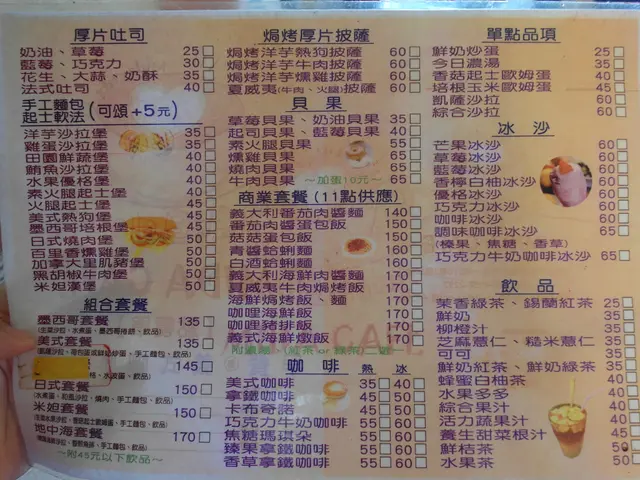 厚片吐司
奶油、草莓 25
藍莓、巧克力 30
花生、大蒜、奶酥 35
法式吐司 40
手工麵包
起士軟法 (可頌+5元)
洋芋沙拉堡 35
雞蛋沙拉堡 35
田園鮮蔬堡 40
鮪魚沙拉堡 40
水果優格堡 40
素火腿起士堡 45
火腿起士堡 45
美式熱狗堡 45
墨西哥培根堡 45
日式燒肉堡 50
百里香燻雞堡 50
加拿大里肌豬堡 50
黑胡椒牛肉堡 50
米妲漢堡 50
組合套餐
墨西哥套餐 135
美式套餐 135
145
日式套餐 150
(水煮蛋、和風沙拉、燒肉、手工麵包、飲品)
米妲套餐 150
地中海套餐 170
~附45元以下飲品~
焗烤厚片披薩
焗烤洋芋熱狗披薩 60
焗烤洋芋牛肉披薩 60
焗烤洋芋燻雞披薩 60
夏威夷(牛肉、火腿)披薩 60
貝果
草莓貝果、奶油貝果 35
起司貝果、藍莓貝果 40
素火腿貝果 55
燻雞貝果 65
燒肉貝果 65
牛肉貝果 65
~加蛋10元~
商業套餐(11點供應)
義大利番茄肉醬麵 140
番茄肉醬蛋包飯 150
菇菇蛋包飯 150
青醬蛤蜊麵 160
白酒蛤蜊麵 160
義大利海鮮肉醬麵 170
夏威夷牛肉焗烤飯 170
海鮮焗烤飯、麵 170
咖哩海鮮飯 170
咖哩豬排飯 170
義式海鮮燉飯 170
咖啡 熱 冰
美式咖啡 35 40
拿鐵咖啡 45 50
卡布奇諾 45 50
巧克力牛奶咖啡 55 60
焦糖瑪琪朵 55 60
臻果拿鐵咖啡 55 60
香草拿鐵咖啡 55 60
單點品項
鮮奶炒蛋 25
今日濃湯 35
香菇起士歐姆蛋 40
培根玉米歐姆蛋 45
凱薩沙拉 60
綜合沙拉 60
冰沙
芒果冰沙 60
草莓冰沙 60
藍莓冰沙 60
香檸白柚冰沙 60
優格冰沙 60
巧克力冰沙 60
咖啡冰沙 60
調味咖啡冰沙 65
(榛果、焦糖、香草)
巧克力牛奶咖啡冰沙 65
飲品
茉香綠茶、錫蘭紅茶 25
鮮奶 35
柳橙汁 35
芝麻薏仁、糙米薏仁 35
可可 35
鮮奶紅茶、鮮奶綠茶 35
蜂蜜白柚茶 40
水果多多 40
綜合果汁 40
活力蔬果汁 45
養生甜菜根汁 45
鮮桔茶 50
水果茶 50